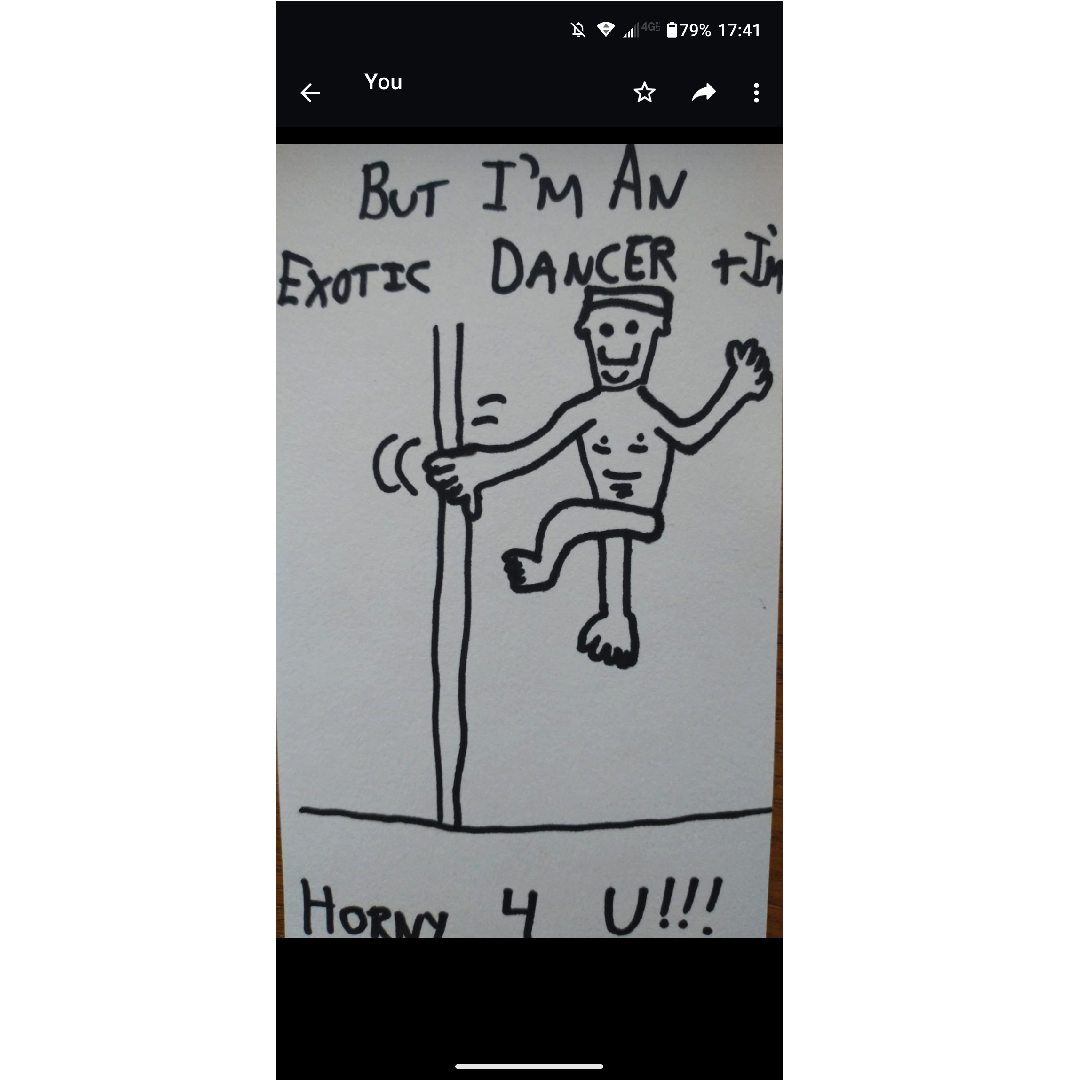 4G 79% 17:41
You
BUT I'M AN
EXOTIC DANCER +I'M
HORNY 4 U!!!